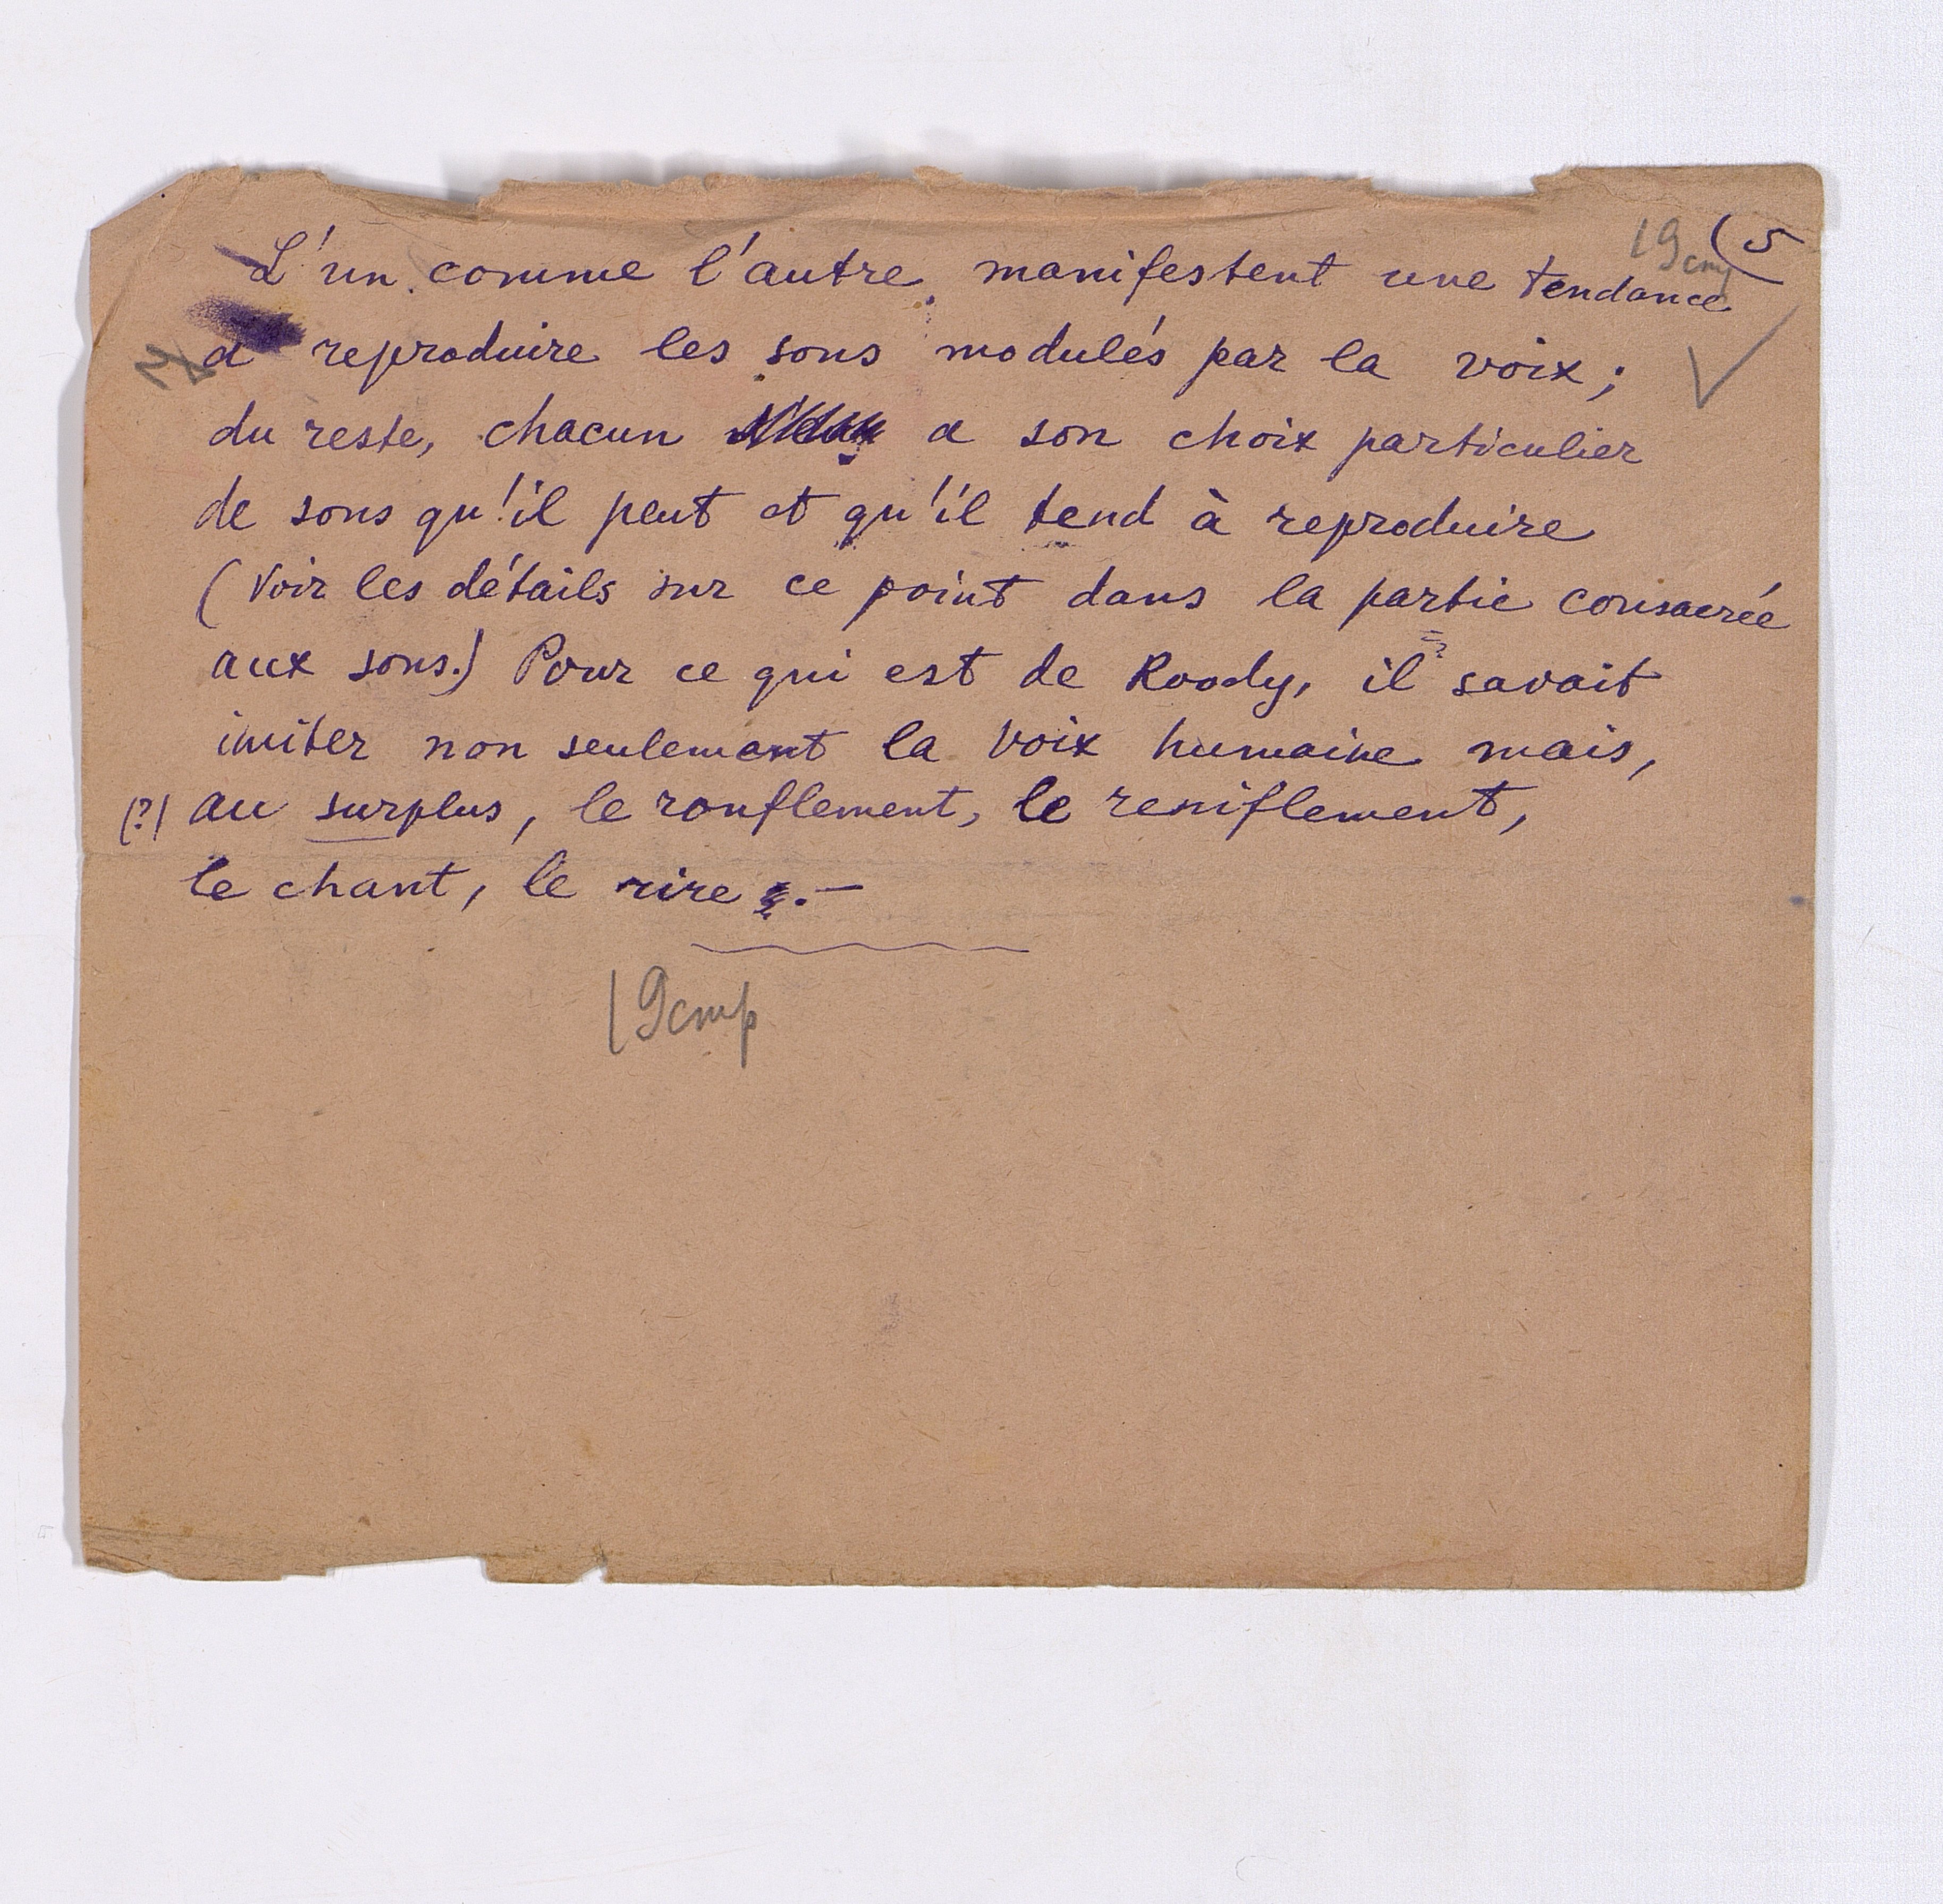 19 стр (5
L'un comme l'autre, manifestent une tendance
à reproduire les sons modulés par la voix;
du reste, chacun a son choix particulier
de sons qu'il peut et qu'il tend à reproduire
(Voir les détails sur ce point dans la partie consacrée
aux sons.) Pour ce qui est de Roody, il savait
imiter non seulement la voix humaine mais,
(?) au surplus, le ronflement, le reniflement,
le chant, le rire.—
19 стр